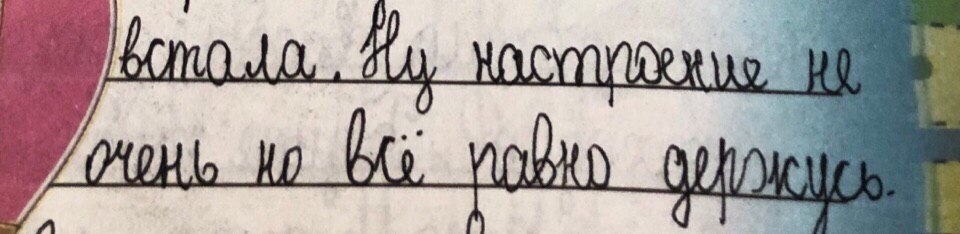 встала. Ну настроение не
очень но всё равно держусь.